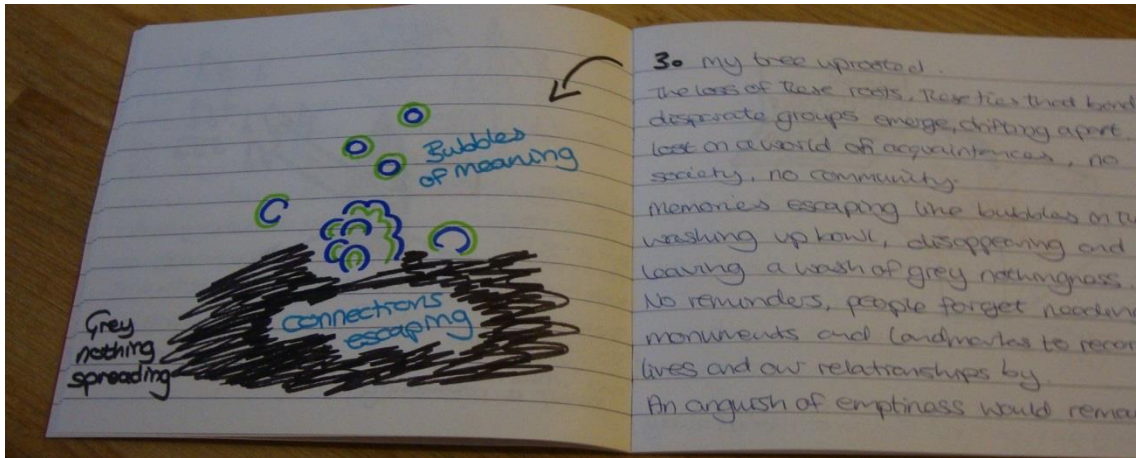 Bubbles
of meaning
connections
escaping
Grey
nothing
spreading
3. my tree uprooted.
The loss of these roots, these ties that bend
desparate groups emerge, drifting apart
lost in a world of acquaintences, no
society, no community.
Memories escaping like bubbles in the
washing up bowl, disappearing and
leaving a wash of grey nothingness.
No reminders, people forget needing
monuments and landmarks to
lives and our relationships by.
An anguish of emptiness would